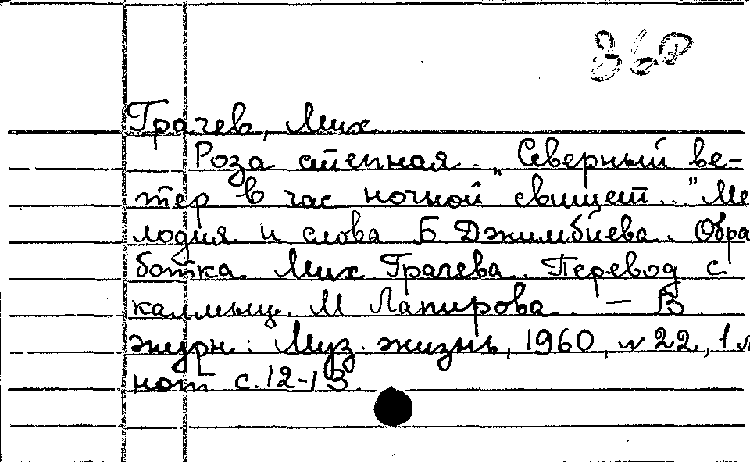 ЗвФ
Грачев, Мих
Роза степная. „Северный ве-
тер в час ночной свищет..." Ме
лодия и слова Б Джимбиева. Обра
ботка Мих Грачева. Перевод с
калмыц. М Лапирова. — В
журн.: Муз. жизнь, 1960, №22, 1 л
нот с. 12-13.